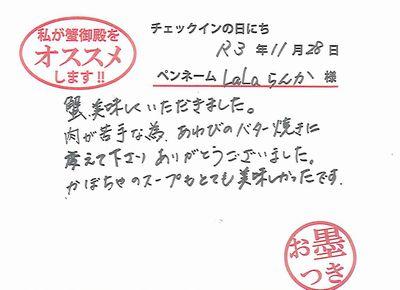 私が蟹御殿を
オススメ
します!!
チェックインの日にち
R3年11月28日
ペンネーム LaLaらんか 様
蟹美味しくいただきました。
肉が苦手な為、あわびのバター焼きに
変えて下さりありがとうございました。
かぼちゃのスープもとても美味しかったです。
お墨
つき